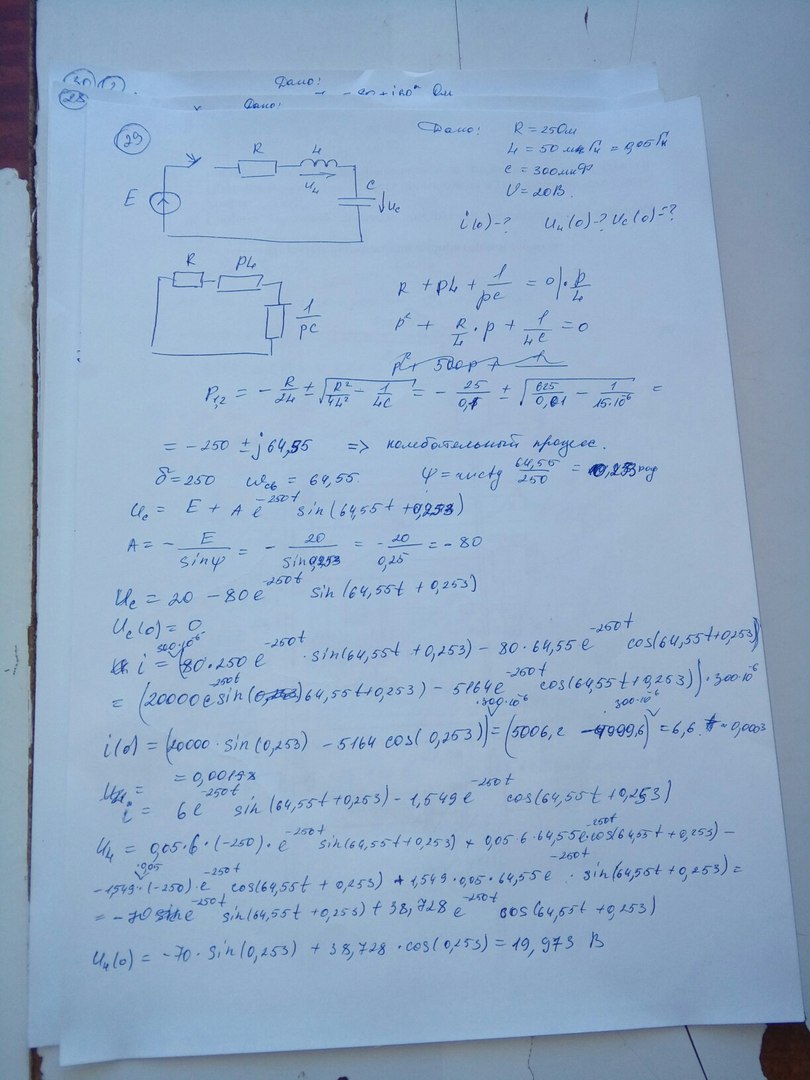 Дано:
28
Дано:
29
Дано: R = 25 Ом
L = 50 мкГн = 0,05 Гн
C = 300 мкФ
U = 20 В.
i(0)-? U_L(0)-? U_C(0)=?
R L
E U_L C U_C
R pL
1/pC
R + pL + 1/pC = 0 | · p/L
p² + R/L · p + 1/LC = 0
P₁,₂ = - R/2L ± √(R²/4L² - 1/LC) = - 25/0,1 ± √(625/0,01 - 1/15·10⁻⁶) =
= -250 ± j 64,55 => колебательный процесс.
δ = 250 ω_св = 64,55. φ = arctg 64,55/250 = 0,253 рад
U_C = E + A e^(-250t) sin(64,55t + 0,253)
A = - E/sinφ = - 20/sin0,253 = - 20/0,25 = -80
U_C = 20 - 80e^(-250t) sin(64,55t + 0,253)
U_C(0) = 0
i = 300·10⁻⁶ (80·250 e^(-250t) · sin(64,55t + 0,253) - 80·64,55e^(-250t) cos(64,55t+0,253)) =
= (20000 e^(-250t) sin(64,55t+0,253) - 5164e^(-250t) cos(64,55t+0,253)) · 300·10⁻⁶
i(0) = (20000 · sin(0,253) - 5164 cos(0,253)) · 300·10⁻⁶ = (5006,2 - 4999,6) · 300·10⁻⁶ = 6,6 · 0,0003
= 0,00198
i = 6e^(-250t) sin(64,55t+0,253) - 1,549e^(-250t) cos(64,55t+0,253)
U_L = 0,05·6·(-250)·e^(-250t) sin(64,55t+0,253) + 0,05·6·64,55e^(-250t) cos(64,55t+0,253) -
-1,549·0,05·(-250)·e^(-250t) cos(64,55t + 0,253) + 1,549·0,05·64,55e^(-250t) · sin(64,55t+0,253) =
= -70 e^(-250t) sin(64,55t+0,253) + 38,728 e^(-250t) cos(64,55t+0,253)
U_L(0) = -70 · sin(0,253) + 38,728 · cos(0,253) = 19,973 В